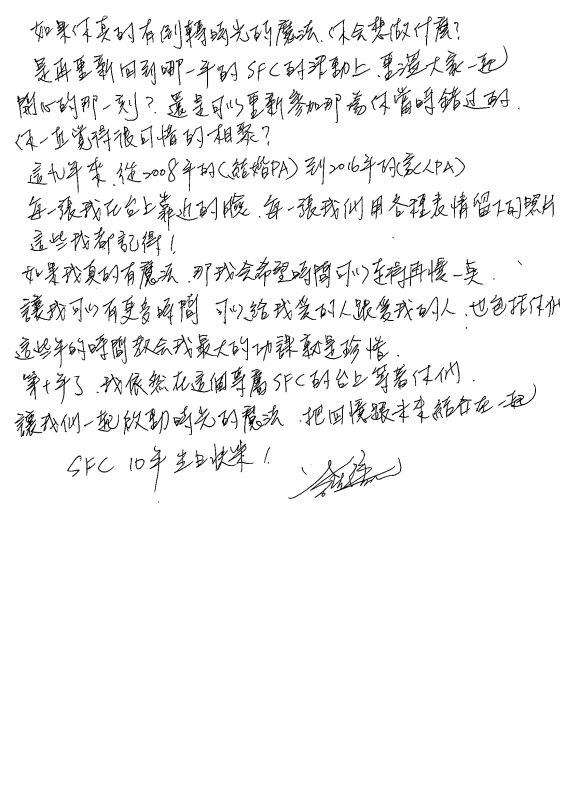 如果你真的有倒轉時光的魔法.你会想做什麼?
是再重新回到哪一年的SFC的活動上.重溫大家一起
開心的那一刻? 還是可以重新參加那為你當時錯过的.
你一直覺得很可惜的相聚?
這九年來.從2008年的(結婚PA)到2016年的(家人PA)
每一張我在台上靠近的臉.每一張我們用各種表情留下的照片
這些我都記得!
如果我真的有魔法.那我会希望時間可以走得再慢一矣.
讓我可以有更多時間 可以給我愛的人跟愛我的人.也包括你们
這些年的時間教会我最大的功課就是珍惜.
第十年了.我依然在這個專屬SFC的台上等著你们.
讓我们一起啟動時光的魔法.把回憶跟未來結合在一起
SFC 10年生日快樂!